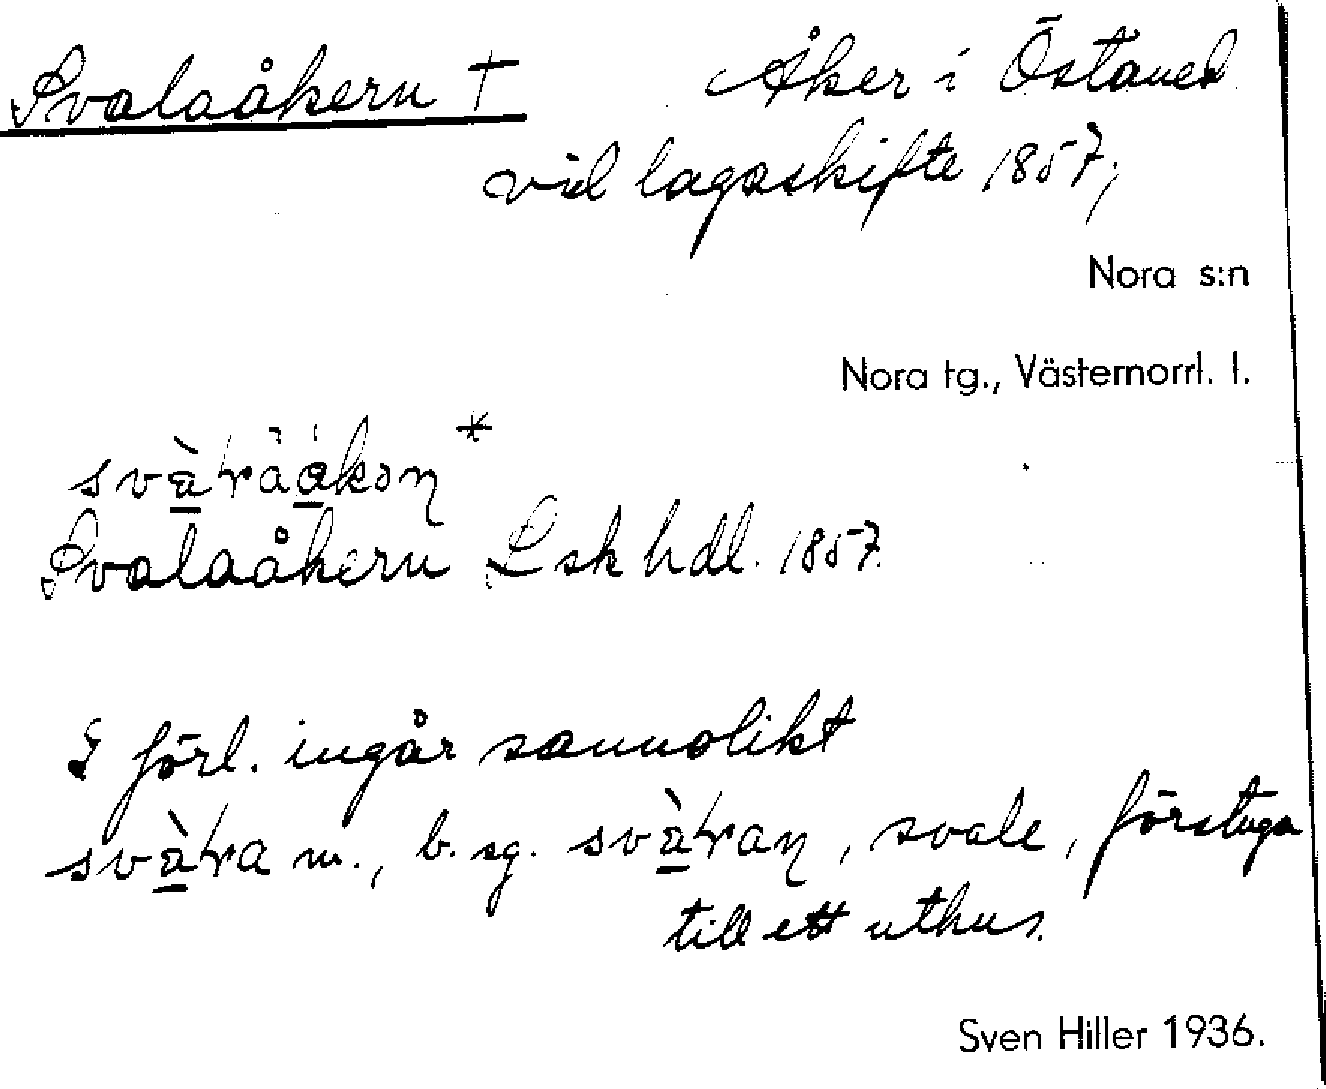 Svalaåkern † Åker i Östaned
vid lagaskifte 1857,
Nora s:n
Nora tg., Västernorrl. l.
Svalaåkern L sk hdl. 1857.
I förl. ingår sannolikt
m., b. sg. , svale, förstuga
till ett uthus.
Sven Hiller 1936.